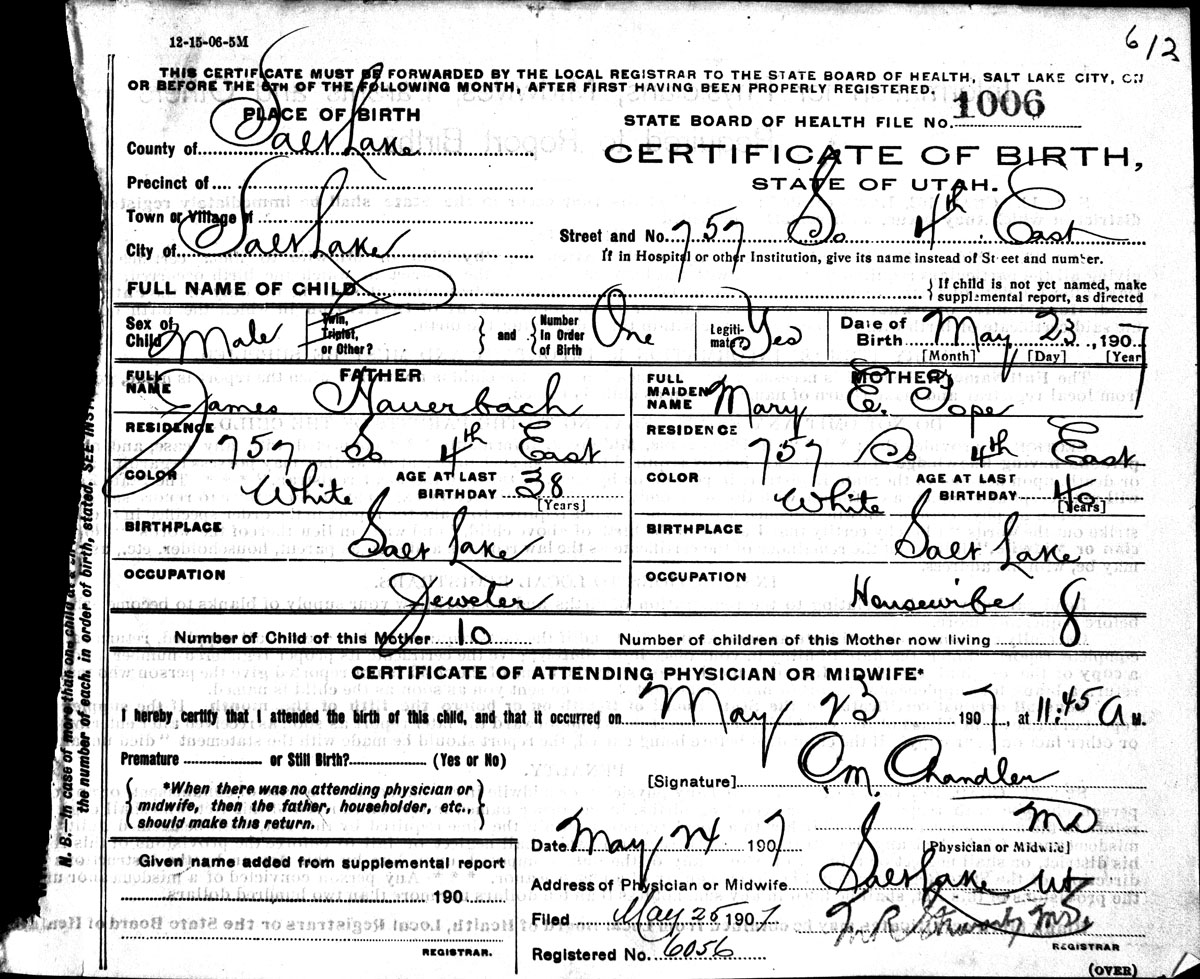 12-15-06-5M
6/3
THIS CERTIFICATE MUST BE FORWARDED BY THE LOCAL REGISTRAR TO THE STATE BOARD OF HEALTH, SALT LAKE CITY, ON
OR BEFORE THE 5TH OF THE FOLLOWING MONTH, AFTER FIRST HAVING BEEN PROPERLY REGISTERED.
PLACE OF BIRTH
STATE BOARD OF HEALTH FILE No. 1006
County of Salt Lake
CERTIFICATE OF BIRTH,
STATE OF UTAH.
Precinct of
Town or Village of
City of Salt Lake
Street and No. 757 So 4th East
If in Hospital or other Institution, give its name instead of Street and number.
FULL NAME OF CHILD
If child is not yet named, make
supplemental report, as directed
Sex of Child Male
Twin, Triplet, or Other?
and Number In Order of Birth One
Legitimate? Yes
Date of Birth May 23, 1907
[Month] [Day] [Year
FATHER
FULL NAME James Bauerbach
RESIDENCE 757 So 4th East
COLOR White
AGE AT LAST BIRTHDAY 38
[Years]
BIRTHPLACE Salt Lake
OCCUPATION Jeweler
MOTHER
FULL MAIDEN NAME Mary E. Pope
RESIDENCE 757 So 4th East
COLOR White
AGE AT LAST BIRTHDAY 40
[Years]
BIRTHPLACE Salt Lake
OCCUPATION Housewife
Number of Child of this Mother 10
Number of children of this Mother now living 8
CERTIFICATE OF ATTENDING PHYSICIAN OR MIDWIFE*
I hereby certify that I attended the birth of this child, and that it occurred on May 23 1907, at 11.45 A M.
Premature or Still Birth? (Yes or No)
[Signature] O M. Chandler
MD
[Physician or Midwife]
*When there was no attending physician or
midwife, then the father, householder, etc.,
should make this return.
Date May 24 1907
Given name added from supplemental report
190
REGISTRAR.
Address of Physician or Midwife Salt Lake Ut
Filed May 25 1907
REGISTRAR
Registered No. 6056
(OVER)
N. B.—In case of more than one child at a
the number of each, in order of birth, stated. SEE INST